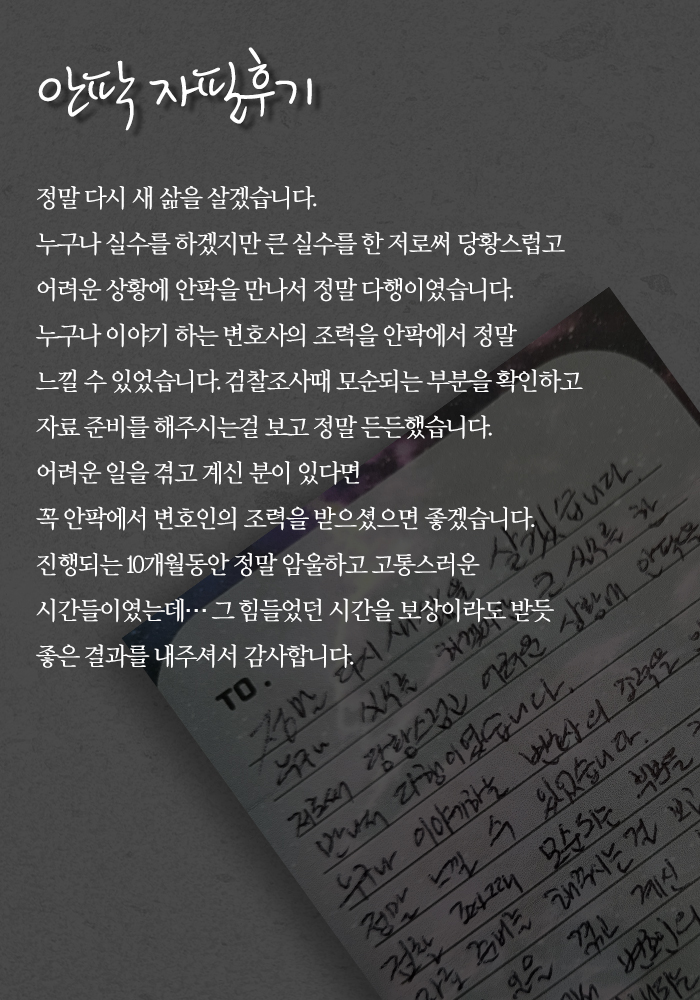 안팍 자필후기
정말 다시 새 삶을 살겠습니다.
누구나 실수를 하겠지만 큰 실수를 한 저로써 당황스럽고
어려운 상황에 안팍을 만나서 정말 다행이였습니다.
누구나 이야기 하는 변호사의 조력을 안팍에서 정말
느낄 수 있었습니다. 검찰조사때 모순되는 부분을 확인하고
자료 준비를 해주시는걸 보고 정말 든든했습니다.
어려운 일을 겪고 계신 분이 있다면
꼭 안팍에서 변호인의 조력을 받으셨으면 좋겠습니다.
진행되는 10개월동안 정말 암울하고 고통스러운
시간들이였는데… 그 힘들었던 시간을 보상이라도 받듯
좋은 결과를 내주셔서 감사합니다.
TO.
정말 다시 새 삶을 살겠습니다.
누구나 실수를 하겠지만 큰 실수를 한
저로써 당황스럽고 어려운 상황에 안팍을
만나서 다행이였습니다.
누구나 이야기하는 변호사의 조력을
정말 느낄 수 있었습니다.
검찰 조사때 모순되는 부분을
자료 준비를 해주시는걸 보
일을 겪고 계신
변호인의